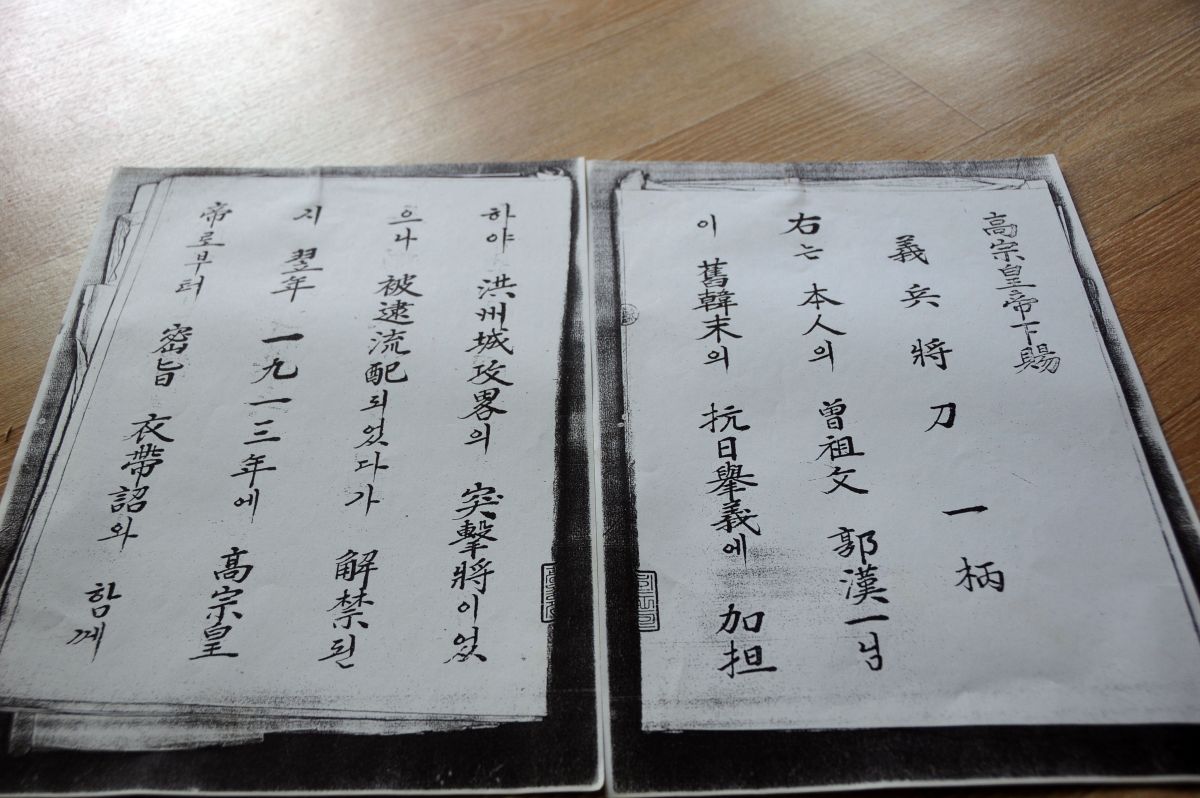 高宗皇帝下賜
義兵將刀 一柄
右는 本人의 曾祖父 郭漢一님
이 舊韓末의 抗日擧義에 加担
하야 洪州城攻畧의 突擊將이었
으나 被逮流配되었다가 解禁된
지 翌年 一九一三年에 高宗皇
帝로부터 密旨 衣帶詔와 함께